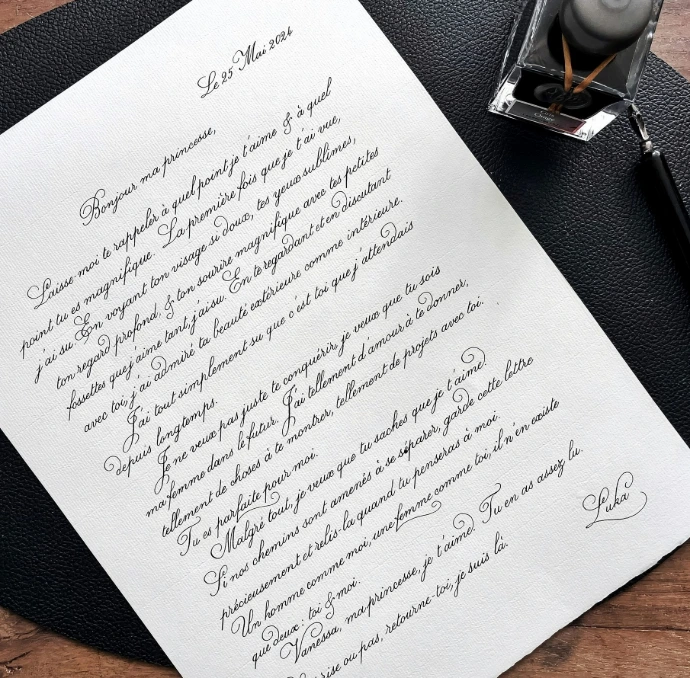 Le 25 Mai 2024
Bonjour ma princesse,
Laisse moi te rappeler à quel point je t'aime & à quel
point tu es magnifique. La première fois que je t'ai vue,
j'ai su. En voyant ton visage si doux, tes yeux sublimes,
ton regard profond, & ton sourire magnifique avec tes petites
fossettes que j'aime tant, j'ai su. En te regardant et en discutant
avec toi, j'ai admiré ta beauté extérieure comme intérieure.
J'ai tout simplement su que c'est toi que j'attendais
depuis longtemps.
Je ne veux pas juste te conquérir, je veux que tu sois
ma femme dans le futur. J'ai tellement d'amour à te donner,
tellement de choses à te montrer, tellement de projets avec toi.
Tu es parfaite pour moi.
Malgré tout, je veux que tu saches que je t'aime.
Si nos chemins sont amenés à se séparer, garde cette lettre
précieusement et relis-la quand tu penseras à moi.
Un homme comme moi, une femme comme toi, il n'en existe
que deux : toi & moi.
Vanessa, ma princesse, je t'aime. Tu en as assez lu.
rise ou pas, retourne-toi, je suis là.
Luka